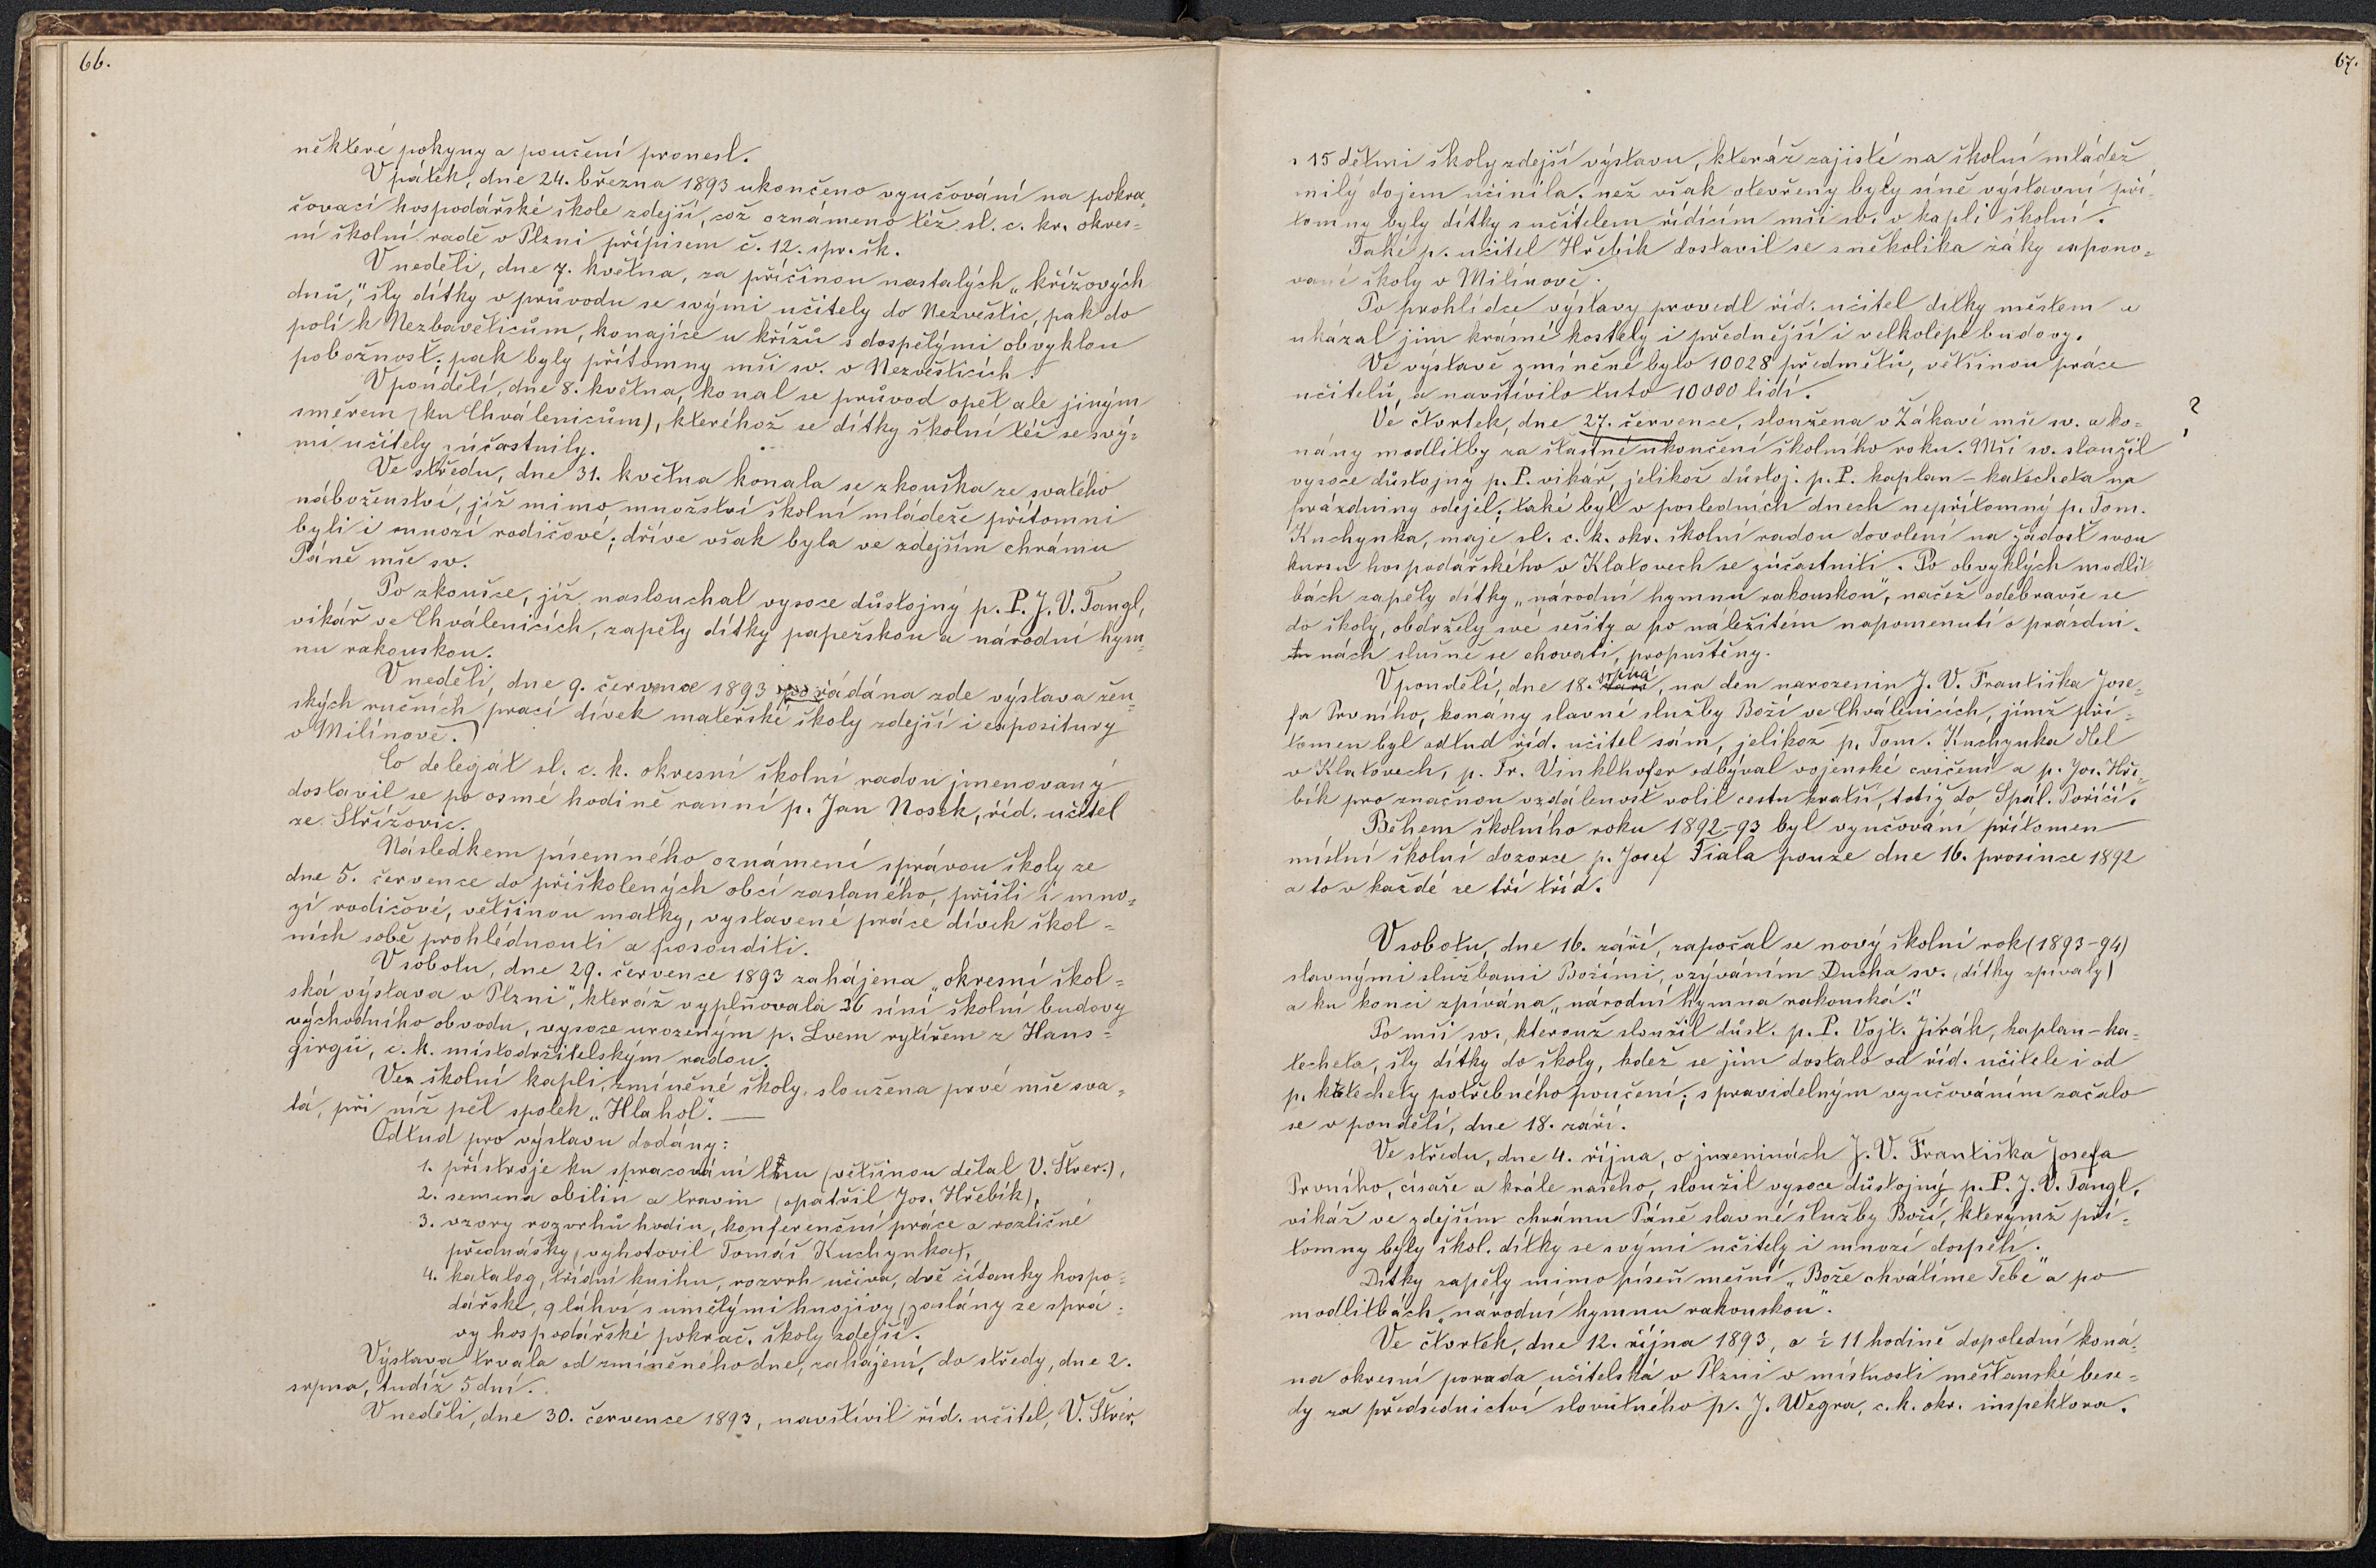 66.
některé pokyny a poučení pronesl.
V pátek, dne 24. března 1893 ukončeno vyučování na pokra-
čovací hospodářské škole zdejší, což oznámeno též sl. c. kr. okres-
ní školní radě v Plzni přípisem č. 12. spr. šk.
V neděli, dne 7. května, za příčinou nastalých „křížových
dnů," šly dítky v průvodu se svými učitely do Nezvěstic, pak do
polí k Nezbavěticům, konajíce u křížů s dospělými obvyklou
pobožnost; pak byly přítomny mši sv. v Nezvěsticích.
V pondělí, dne 8. května, konal se průvod opět ale jiným
směrem (ku Chválenicům), kteréhož se dítky školní též se svý-
mi učitely súčastnily.
Ve středu, dne 31. května konala se zkouška ze svatého
náboženství, jíž mimo množství školní mládeže přítomni
byli i mnozí rodičové; dříve však byla ve zdejším chrámu
Páně mše sv.
Po zkoušce, jíž naslouchal vysoce důstojný p. P. J. V. Tangl,
vikář ve Chválenicích, zapěly dítky papežskou a národní hym-
nu rakouskou.
V neděli, dne 9. července 1893 pořádána zde výstava žen-
ských ručních prací dívek mateřské školy zdejší i expositury
v Milínově.
Co delegát sl. c. k. okresní školní radou jmenovaný
dostavil se po osmé hodině ranní p. Jan Nosek, říd. učitel
ze Střížovic.
Následkem písemného oznámení správou školy ze
dne 5. července do přiškolených obcí zaslaného, přišli i mno-
zí rodičové, většinou matky, vystavené práce dívek škol-
ních sobě prohlédnouti a posouditi.
V sobotu, dne 29. července 1893 zahájena „okresní škol-
ská výstava v Plzni", kteráž vyplňovala 36 síní školní budovy
východního obvodu, vysoce urozeným p. Lvem rytířem z Hans-
girgů, c. k. místodržitelským radou.
Ve školní kapli, zmíněné školy, sloužena prvé mše sva-
tá, při níž pěl spolek „Hlahol". —
Odtud pro výstavu dodány:
1. přístroje ku spracování lnu (většinou dělal V. Štver.),
2. semena obilin a travin (opatřil Jos. Hřebík),
3. vzory rozvrhů hodin, konferenční práce a rozličné
přednášky (vyhotovil Tomáš Kuchynka),
4. katalog, třídní knihu, rozvrh učiva, dvě čítanky hospo-
dářské, 9 láhví s umělými hnojivy (zaslány ze sprá-
vy hospodářské pokrač. školy zdejší.
Výstava trvala od zmíněného dne, zahájení, do středy, dne 2.
srpna, tudíž 5 dní.
V neděli, dne 30. července 1893, navštívil říd. učitel, V. Štver,
67.
s 15 dětmi školy zdejší výstavu, kteráž zajisté na školní mládež
milý dojem učinila; než však otevřeny byly síně výstavní pří-
tomny byly dítky s učitelem řídícím mši sv. v kapli školní.
Také p. učitel Hřebík dostavil se s několika žáky expono-
vané školy v Milínově.
Po prohlídce výstavy provedl říd. učitel dítky městem a
ukázal jim krásné kostely i přednější i velkolepé budovy.
Ve výstavě zmíněné bylo 10028 předmětů, většinou práce
učitelů, a navštívilo tuto 10000 lidí.
Ve čtvrtek, dne 27. července, sloužena v Žákavě mše sv. a ko- ?
nány modlitby za šťastné ukončení školního roku. Mši sv. sloužil
vysoce důstojný p. P. vikář, jelikož důstoj. p. P. kaplan - katecheta na
prázdniny odejel; také byl v posledních dnech nepřítomný p. Tom.
Kuchynka, maje sl. c. k. okr. školní radou dovolení na žádost svou
kursu hospodářského v Klatovech se zúčastniti. Po obvyklých modlit-
bách zapěly dítky „národní hymnu rakouskou", načež odebravše se
do školy, obdržely své sešity a po náležitém napomenutí o prázdni-
nách slušně se chovati, propuštěny.
V pondělí, dne 18. srpna, na den narozenin J. V. Františka Jose-
fa Prvního, konány slavné služby Boží ve Chválenicích, jimž pří-
tomen byl odtud říd. učitel sám, jelikož p. Tom. Kuchynka dlel
v Klatovech, p. Fr. Vinklhofer odbýval vojenské cvičení a p. Jos. Hře-
bík pro značnou vzdálenost volil cestu kratší, totiž do Spál. Poříčí.
Během školního roku 1892-93 byl vyučování přítomen
místní školní dozorce p. Josef Fiala pouze dne 16. prosince 1892
a to v každé ze tří tříd.
V sobotu, dne 16. září, započal se nový školní rok (1893-94)
slavnými službami Božími, vzýváním Ducha sv. (dítky zpívaly)
a ku konci zpívána „národní hymna rakouská."
Po mši sv., kterouž sloužil důst. p. P. Vojt. Jirák, kaplan - ka-
techeta, šly dítky do školy, kdež se jim dostalo od říd. učitele i od
p. katechety potřebného poučení; s pravidelným vyučováním začalo
se v pondělí, dne 18. září.
Ve středu, dne 4. října, o jmeninách J. V. Františka Josefa
Prvního, císaře a krále našeho, sloužil vysoce důstojný p. P. J. V. Tangl,
vikář ve zdejším chrámu Páně slavné služby Boží, kterýmž pří-
tomny byly škol. dítky se svými učitely i mnozí dospělí.
Dítky zapěly mimo píseň mešní „Bože chválíme Tebe" a po
modlitbách „národní hymnu rakouskou".
Ve čtvrtek, dne 12. října 1893, o ½ 11 hodině dopolední koná-
na okresní porada učitelská v Plzni v místnosti měšťanské bese-
dy za předsednictví slovutného p. J. Wegra, c. k. okr. inspektora.